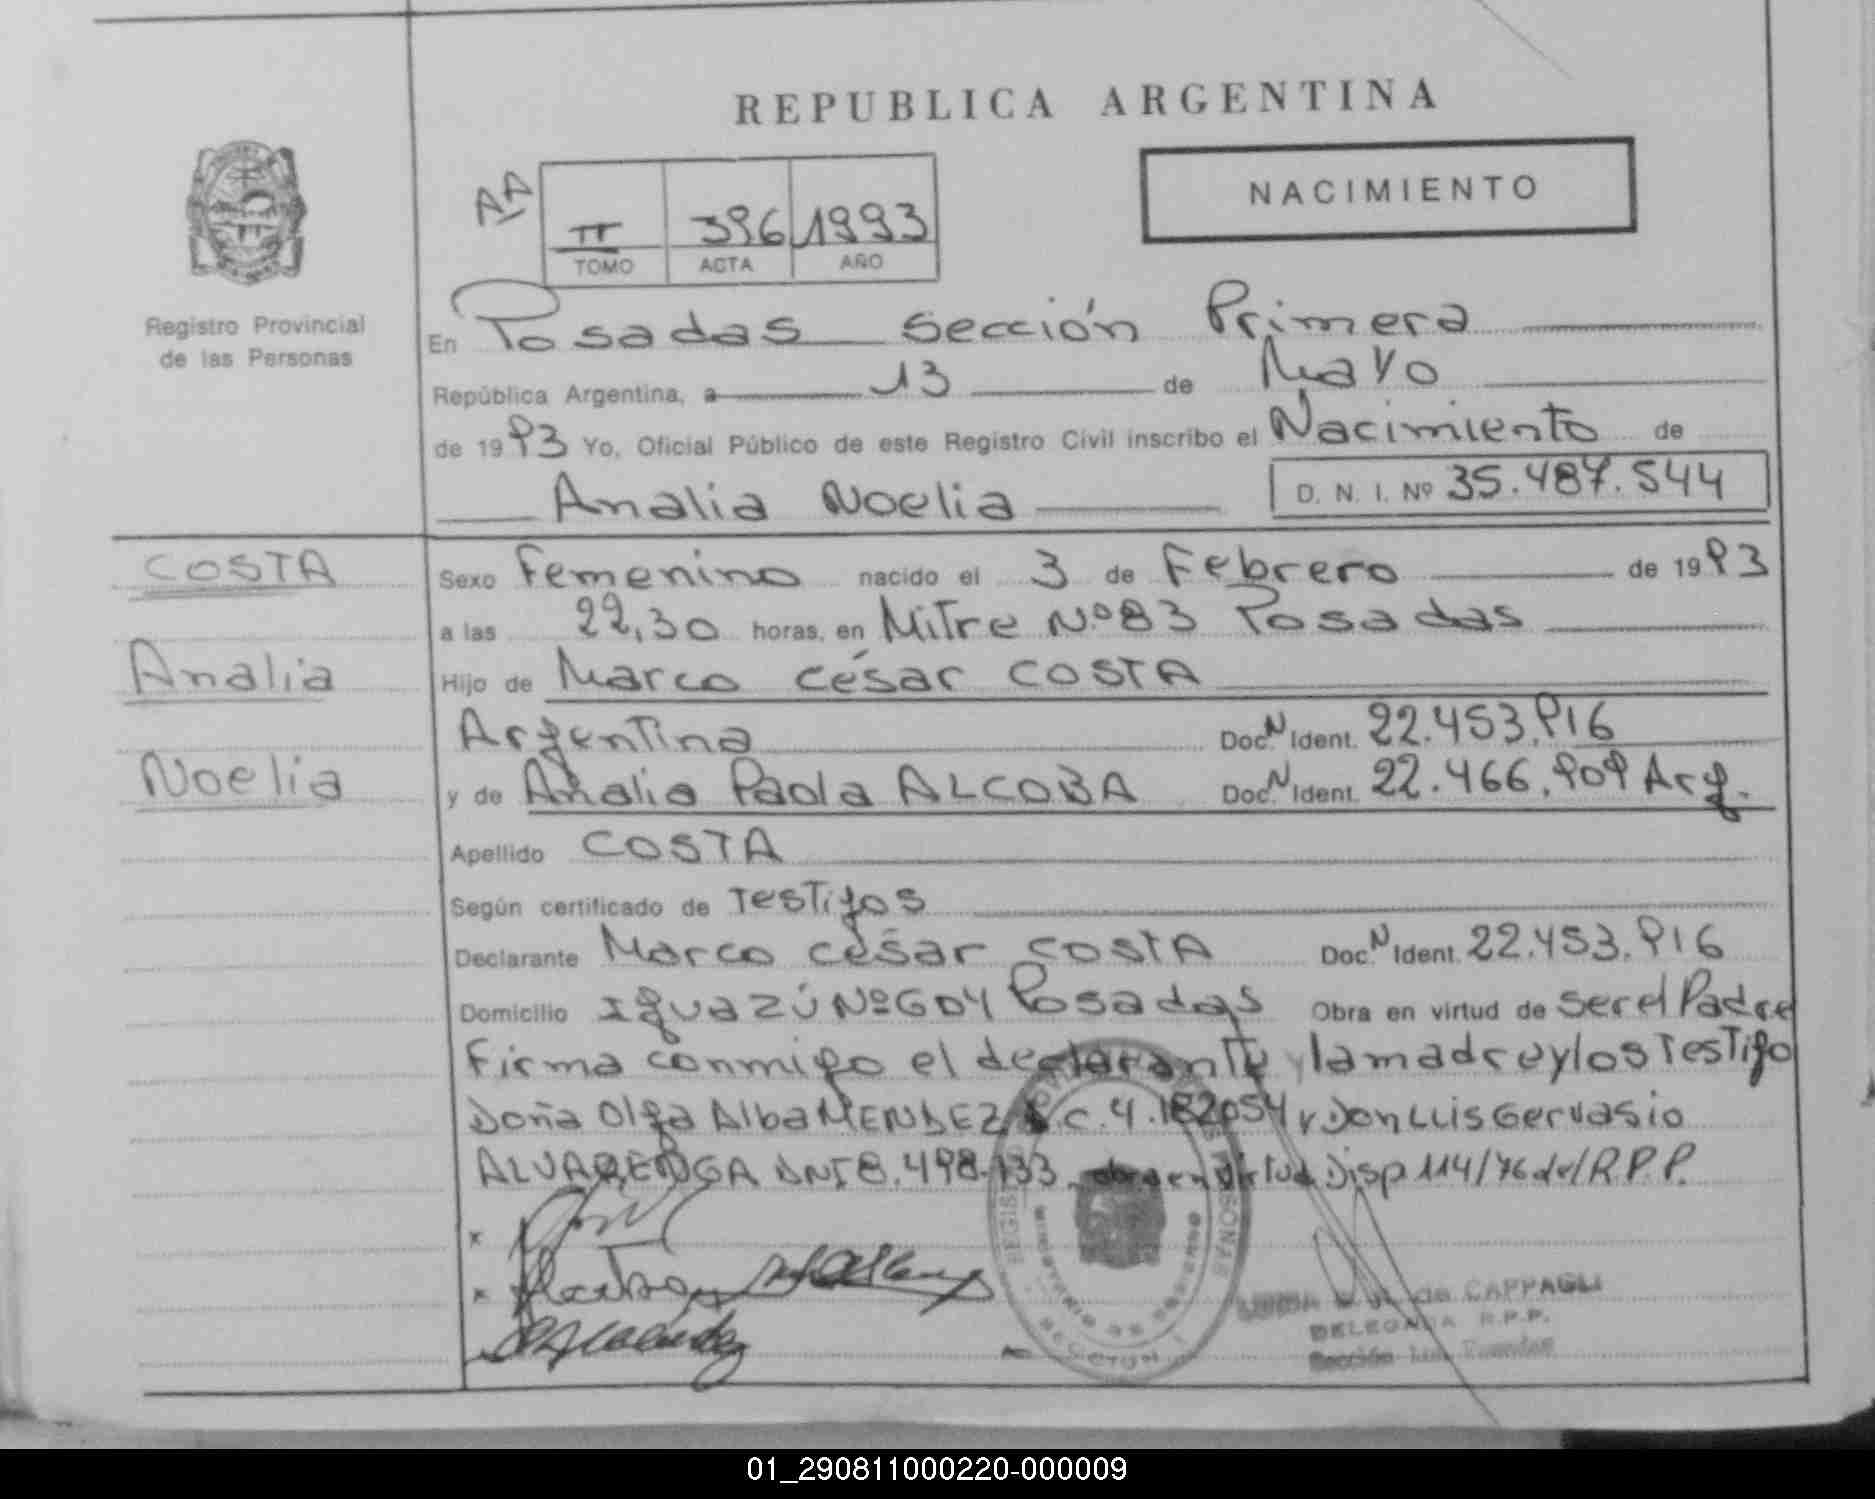 REPUBLICA ARGENTINA
NACIMIENTO
AA
II 396 1993
TOMO ACTA AÑO
Registro Provincial
de las Personas
En Posadas Sección Primera
República Argentina, a 13 de Mayo
de 1993 Yo, Oficial Público de este Registro Civil inscribo el Nacimiento de
Analia Noelia D. N. I. Nº 35.487.544
COSTA
Analia
Noelia
Sexo Femenino nacido el 3 de Febrero de 1993
a las 22,30 horas, en Mitre Nº 83 Posadas
Hijo de Marco César COSTA
Argentina Doc. N Ident. 22.453.916
y de Analia Paola ALCOBA Doc. N Ident. 22.466.909 Arg.
Apellido COSTA
Según certificado de Testigos
Declarante Marco César COSTA Doc. N Ident. 22.453.916
Domicilio Iguazú Nº 604 Posadas Obra en virtud de ser el Padre
Firma conmigo el declarante y la madre y los Testigo
Doña Olga Alba MENDEZ L.C. 4.182054 y Don Luis Gervasio
ALVARENGA DNI 8.498.133, obra en virtud Disp 114/76 del R.P.P.
de CAPPAGLI
DELEGADA R.P.P.
Sección
01_290811000220-000009